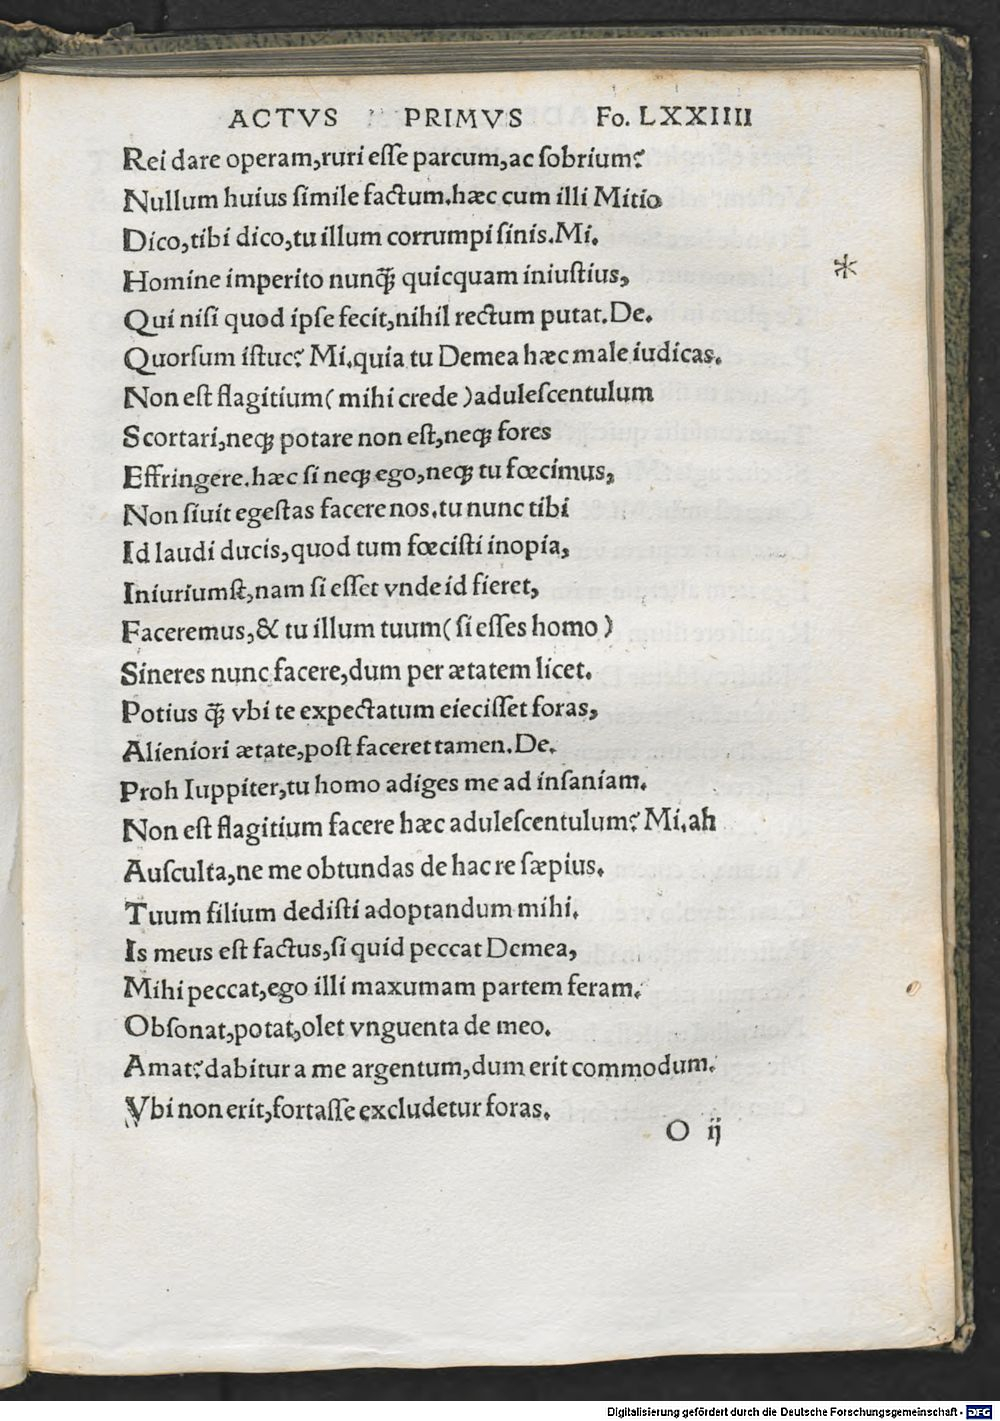 ACTVS PRIMVS Fo. LXXIIII
Rei dare operam,ruri eſſe parcum,ac ſobrium?
Nullum huius ſimile factum.hæc cum illi Mitio
Dico,tibi dico,tu illum corrumpi ſinis.Mi.
Homine imperito nunq̃ quicquam iniuſtius,
*
Qui niſi quod ipſe fecit,nihil rectum putat.De.
Quorſum iſtuc? Mi.quia tu Demea hæc male iudicas.
Non eſt flagitium( mihi crede )aduleſcentulum
Scortari,neqꝫ potare non eſt,neqꝫ fores
Effringere.hæc ſi neqꝫ ego,neqꝫ tu fœcimus,
Non ſiuit egeſtas facere nos.tu nunc tibi
Id laudi ducis,quod tum fœciſti inopia,
Iniuriumſt,nam ſi eſſet vnde id fieret,
Faceremus,& tu illum tuum( ſi eſſes homo )
Sineres nunc facere,dum per ætatem licet.
Potius q̃ vbi te expectatum eieciſſet foras,
Alieniori ætate,poſt faceret tamen.De.
Proh Iuppiter,tu homo adiges me ad inſaniam.
Non eſt flagitium facere hæc aduleſcentulum? Mi.ah
Auſculta,ne me obtundas de hac re ſæpius.
Tuum filium dediſti adoptandum mihi.
Is meus eſt factus,ſi quid peccat Demea,
Mihi peccat,ego illi maxumam partem feram.
Obſonat,potat,olet vnguenta de meo.
Amat?dabitur a me argentum,dum erit commodum.
Vbi non erit,fortaſſe excludetur foras.
O ij
Digitalisierung gefördert durch die Deutsche Forschungsgemeinschaft - DFG